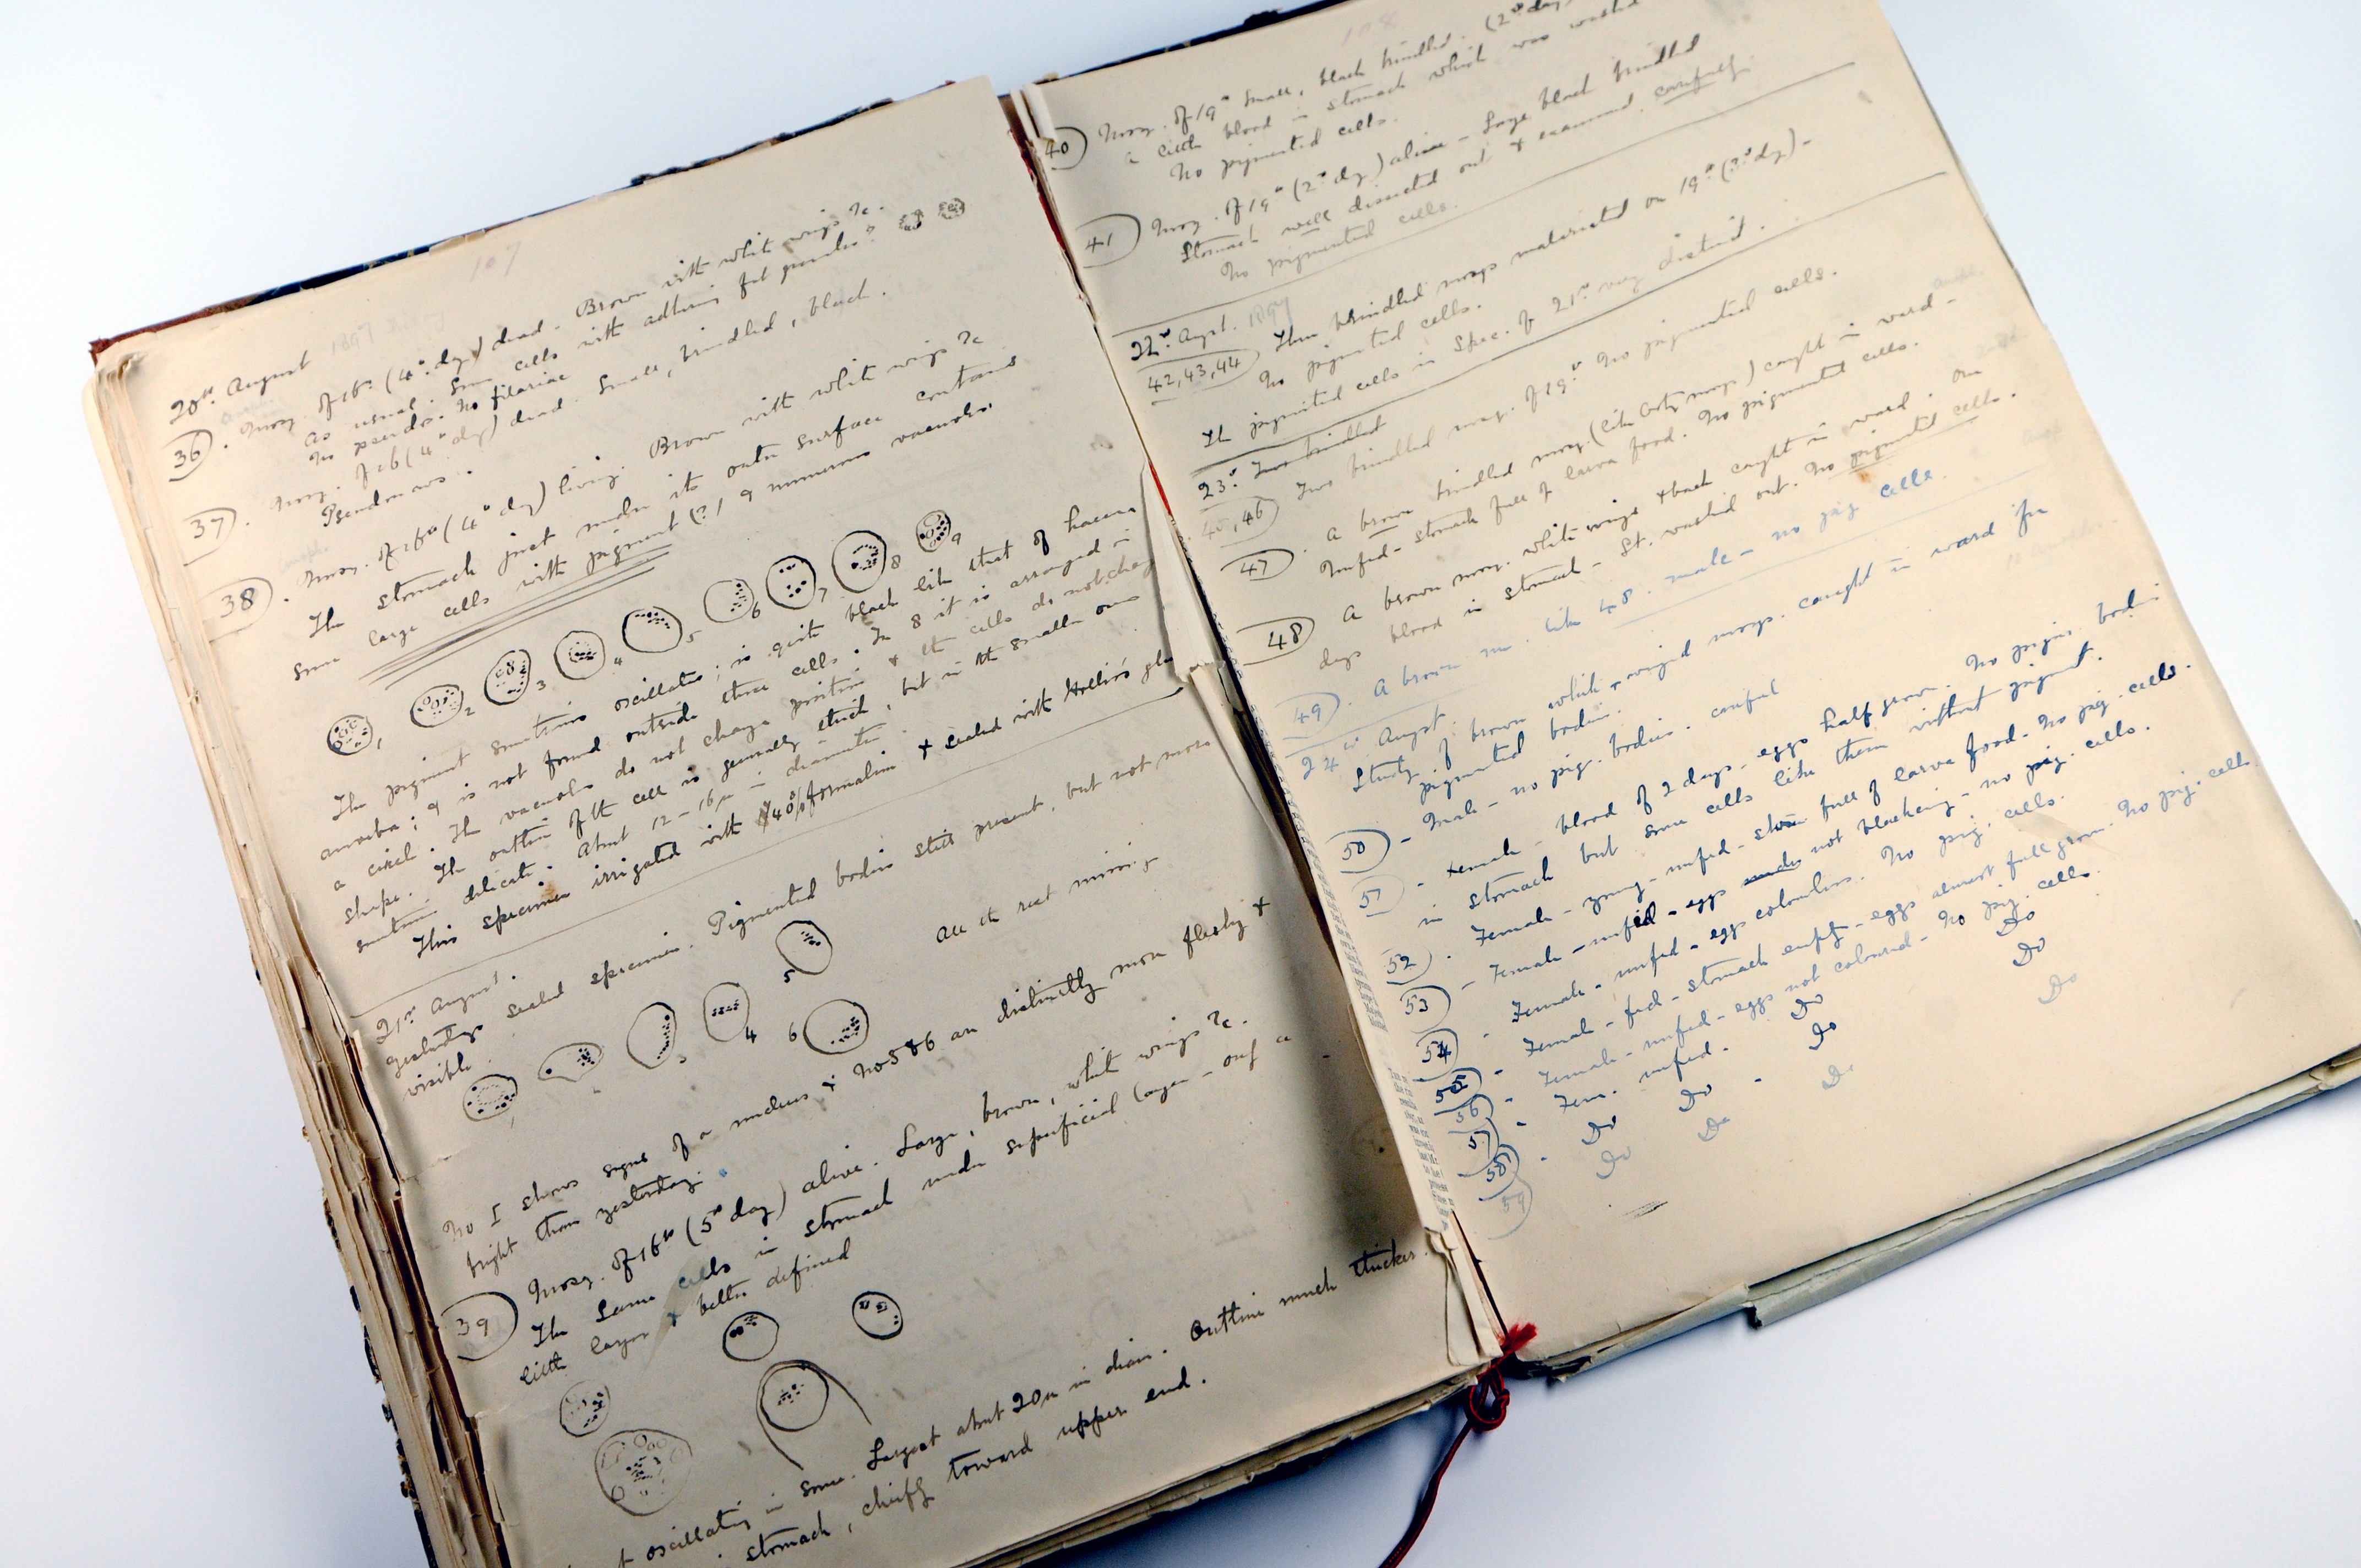 107
20th August 1897
36. Mosq. of 16th (4th dy) dead - Brown with white wings &c.
as usual. Some cells with adhering fat granules?
No pseudo. No filariae
37. Mosq. of 16 (4th dy) dead. Small, brindled, black.
Pseudo
38. Mosq. of 16th (4th dy) living. Brown with white wings &c
The stomach just under its outer surface contains
some large cells with pigment (?) & numerous vacuoles.
1 2 3 4 5 6 7 8 9
The pigment sometimes oscillates; is quite black like that of haem
amoeba; & is not found outside these cells. In 8 it is arranged in
a circle. The vacuoles do not change position & the cells do not change
shape. The outline of the cell is generally thick, but in the smaller ones
sometimes delicate. About 12-16µ in diameter.
This specimen irrigated with 40% formalin & sealed with Hollis's glu
21st August.
Yesterdays sealed specimen. Pigmented bodies still present, but not more
visible
3 4 5 6
All the rest missing
No I shows signs of a nucleus & No 5 & 6 are distinctly more fleshy &
bright than yesterday.
39 Mosq. of 16th (5th day) alive. Large, brown, white wings &c.
The same cells in stomach under superficial layer - only a
little larger & better defined
oscillating in some. Largest about 20µ in diam. Outline much thicker.
stomach, chiefly toward upper end.
108
40 Mosq. of 19th small, black brindled. (2nd day)
a little blood in stomach which was washed
No pigmented cells.
41 Mosq. of 19th (2nd dy) alive - Large black brindled
Stomach well dissected out & examined carefully.
No pigmented cells.
22nd Augst. 1897
42, 43, 44 Three brindled mosqs materialed on 19th (3rd dy) -
No pigmented cells.
The pigmented cells in Spec. of 21st very distinct.
23rd Two brindled
45, 46 Two brindled mosq. of 19th No pigmented cells.
47. A brown brindled mosq. (like Ooty mosq.) caught in ward -
Unfed - stomach full of larva food. No pigmented cells.
48 A brown mosq. white wings & back caught in ward. One
days blood in stomach - St. washed out. No pigmented cells.
49. A brown mo. like 48. male - no pig cells.
24th Augst.
Study of brown white-winged mosqs. caught in ward for
pigmented bodies.
50 - Male - no pig. bodies. careful
51 - Female - blood of 2 days - eggs half grown. No pigm. bodies
in stomach but some cells like them without pigment.
52. Female - young - unfed - stom full of larva food. No pig. cells.
53 - Female - unfed - eggs not blackening - no pig. cells.
54 - Female - unfed - eggs colourless. No pig. cells.
55 - Female - fed - stomach empty - eggs almost full grown. No pig. cells
56 - Female - unfed - eggs not coloured - No pig. cells.
57 - Fem. unfed. Do Do
58 - Do Do - Do Do
59 Do Do Do Do